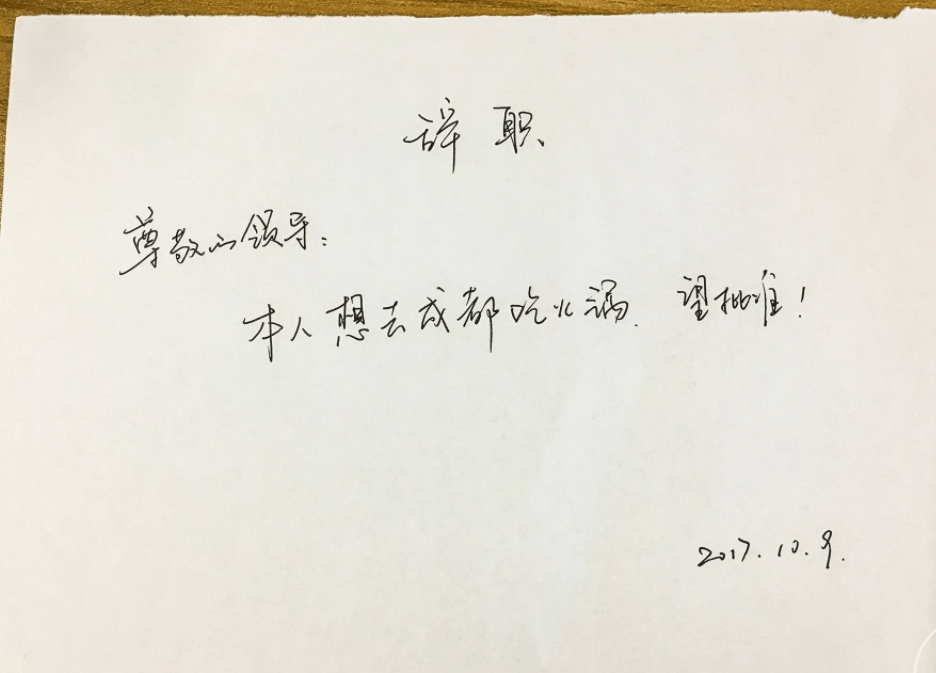 辞职
尊敬的领导：
本人想去成都吃火锅. 望批准！
2017.10.9.